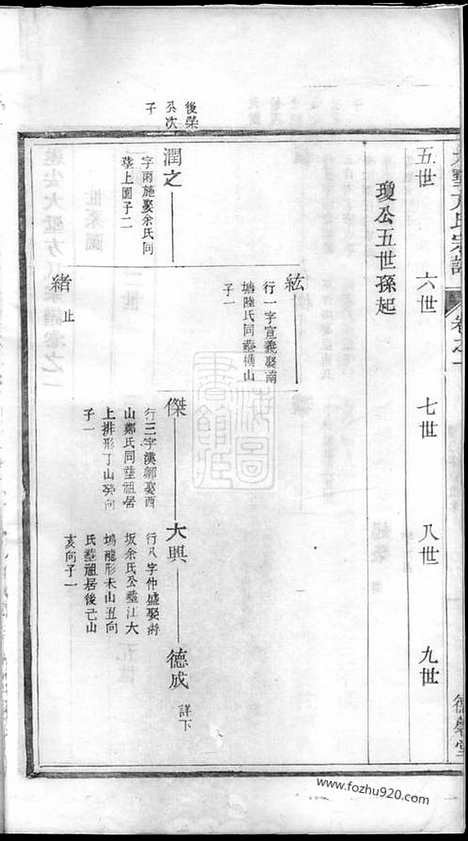 五世　六世　七世　八世　九世
瓊公五世孫起
後榮
公次
子
潤之
字雨施娶余氏同
塟上園子一
紘
行一字宣義娶南
塘陸氏同塟橫山
子一
緒
止
傑
行三字漢卿娶西
山鄭氏同塟祖居
上排形丁山癸向
子一
大興
行八字仲盛娶蔣
坂余氏公塟江大
塢龍形未山丑向
氏塟祖居後己山
亥向子一
德成
詳下
www.fozhu920.com